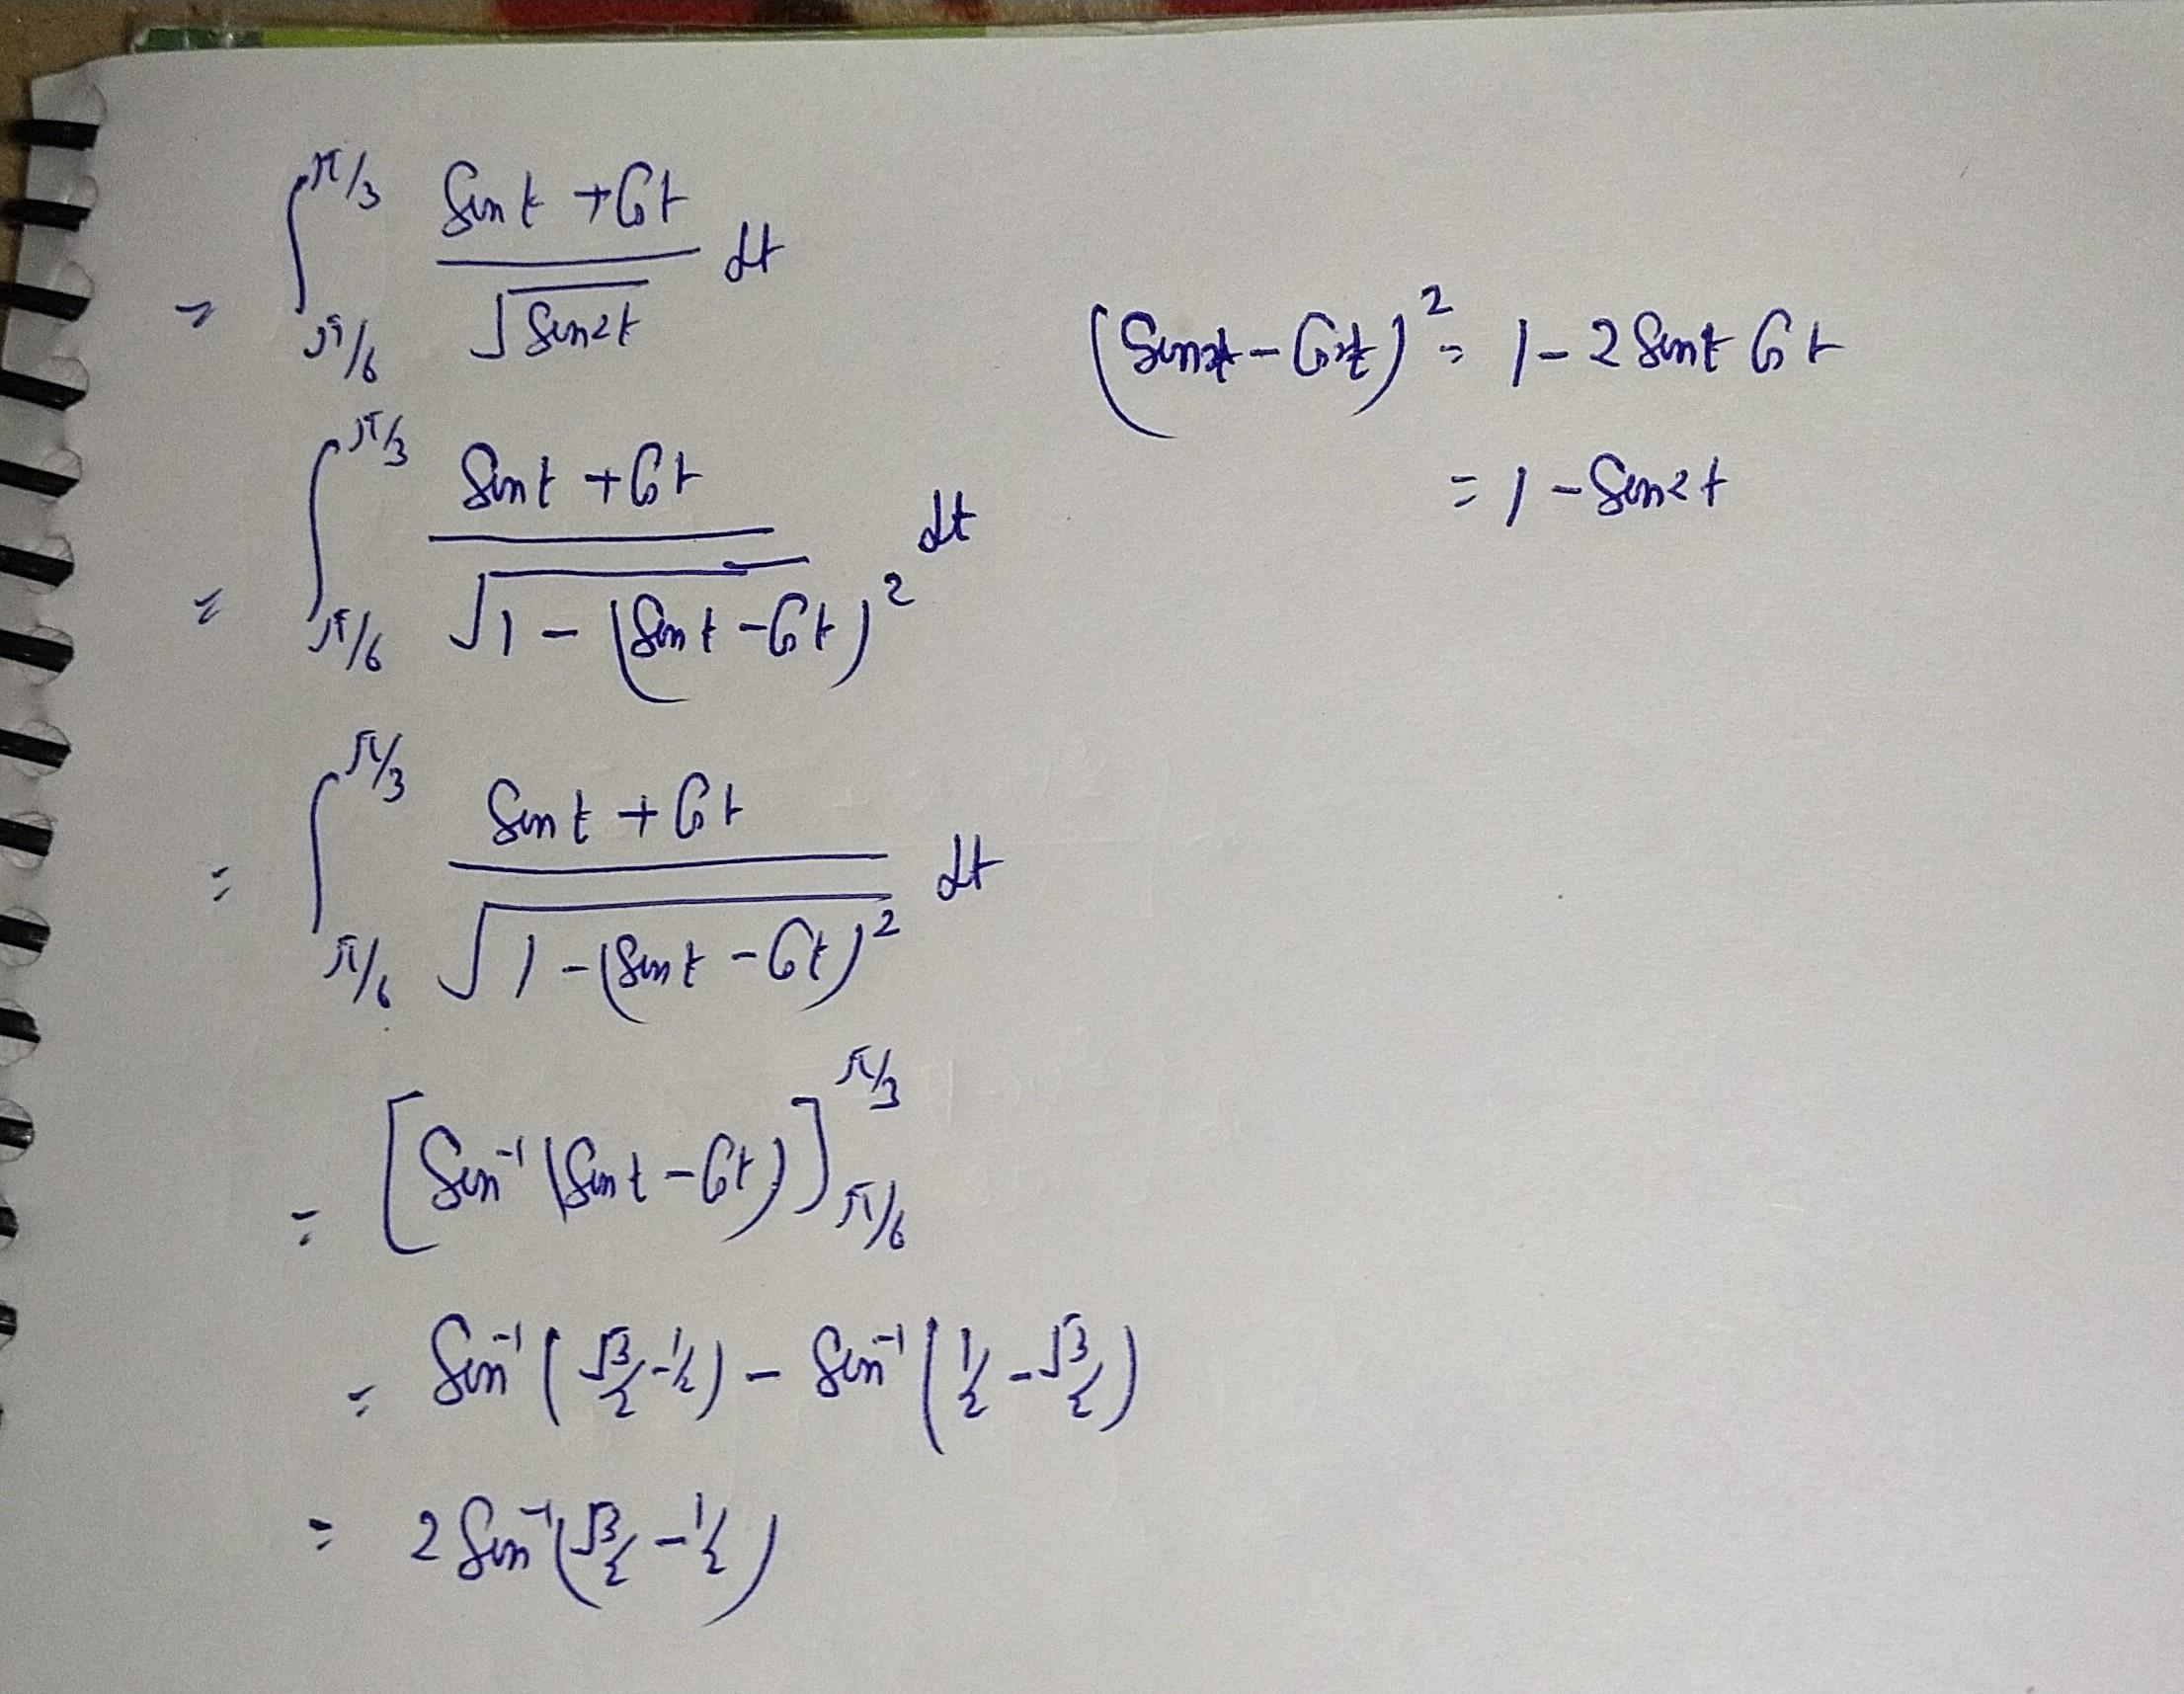 = ∫_{π/6}^{π/3} (Sin t + Cos t) / √(Sin 2t) dt
(Sin t - Cos t)² = 1 - 2 Sin t Cos t
= 1 - Sin 2t
= ∫_{π/6}^{π/3} (Sin t + Cos t) / √(1 - (Sin t - Cos t)²) dt
= ∫_{π/6}^{π/3} (Sin t + Cos t) / √(1 - (Sin t - Cos t)²) dt
= [Sin⁻¹ (Sin t - Cos t)]_{π/6}^{π/3}
= Sin⁻¹ (√3/2 - 1/2) - Sin⁻¹ (1/2 - √3/2)
= 2 Sin⁻¹ (√3/2 - 1/2)